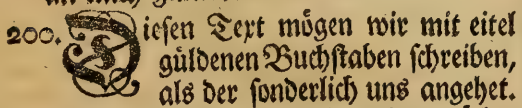 200. Diesen Text mögen wir mit eitel
güldenen Buchstaben schreiben,
als der sonderlich uns angehet.